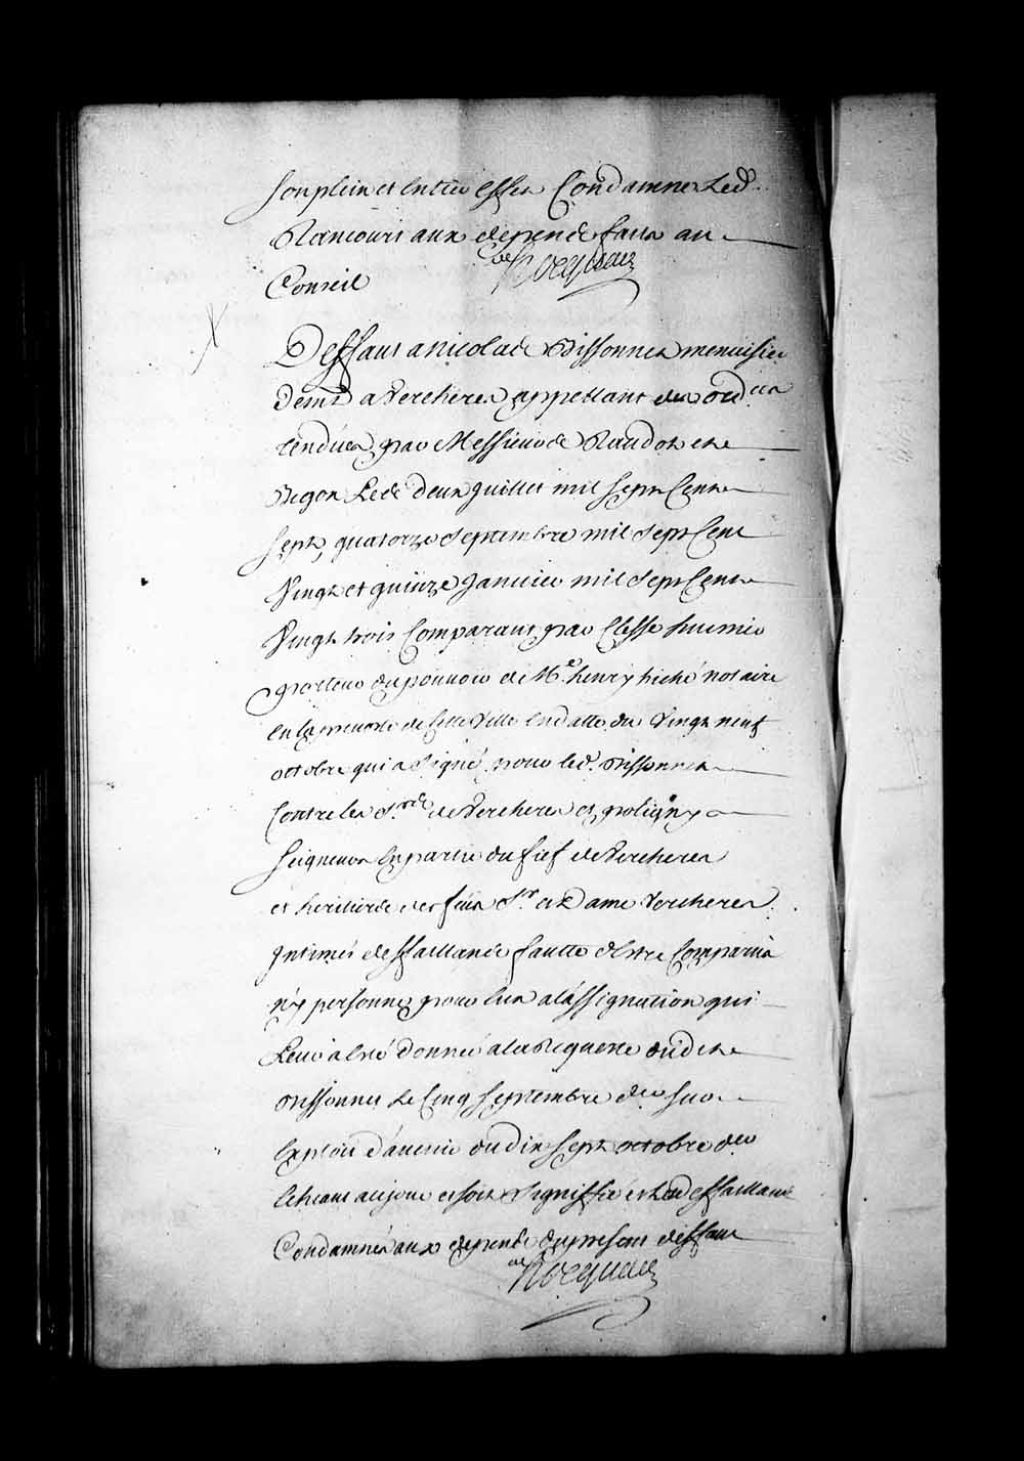 son plein et entier effet Condamne Led.
Rancourt aux depends faits au
Conseil
Hocquart
Deffaut a nicolas Bissonnet menuisier
demt a Vercheres appellant des ord ces
rendües par Messieurs Raudot et
Begon Les deux Juillet mil Sept Cent
Sept, quatorze septembre mil sept Cent
Vingt et quinze Janvier mil sept Cent
Vingt trois Comparant par Claesse huissier
porteur du pouvoir de Me. henry hiché notaire
en la prevosté de cette ville en datte du Vingt neuf
octobre qui a signé pour led. Bissonnet
Contre les Srs. de Vercheres et poligny
Seigneurs en partie du fief de Vercheres
et heritiers des feus Sr. et Dame Vercheres
Intimés deffaillands fautte d'estre Comparus
n'y personnes pour eux a l'assignation qui
Leur a esté donnée a la Requeste dudit
Bissonnet Le Cinq Septembre der Sur
Exploit d'avenir du dix Sept octobre der
echeant au jour et soit signiffié et Led deffaillant
Condamnés aux depends du present deffaut
Hocquart